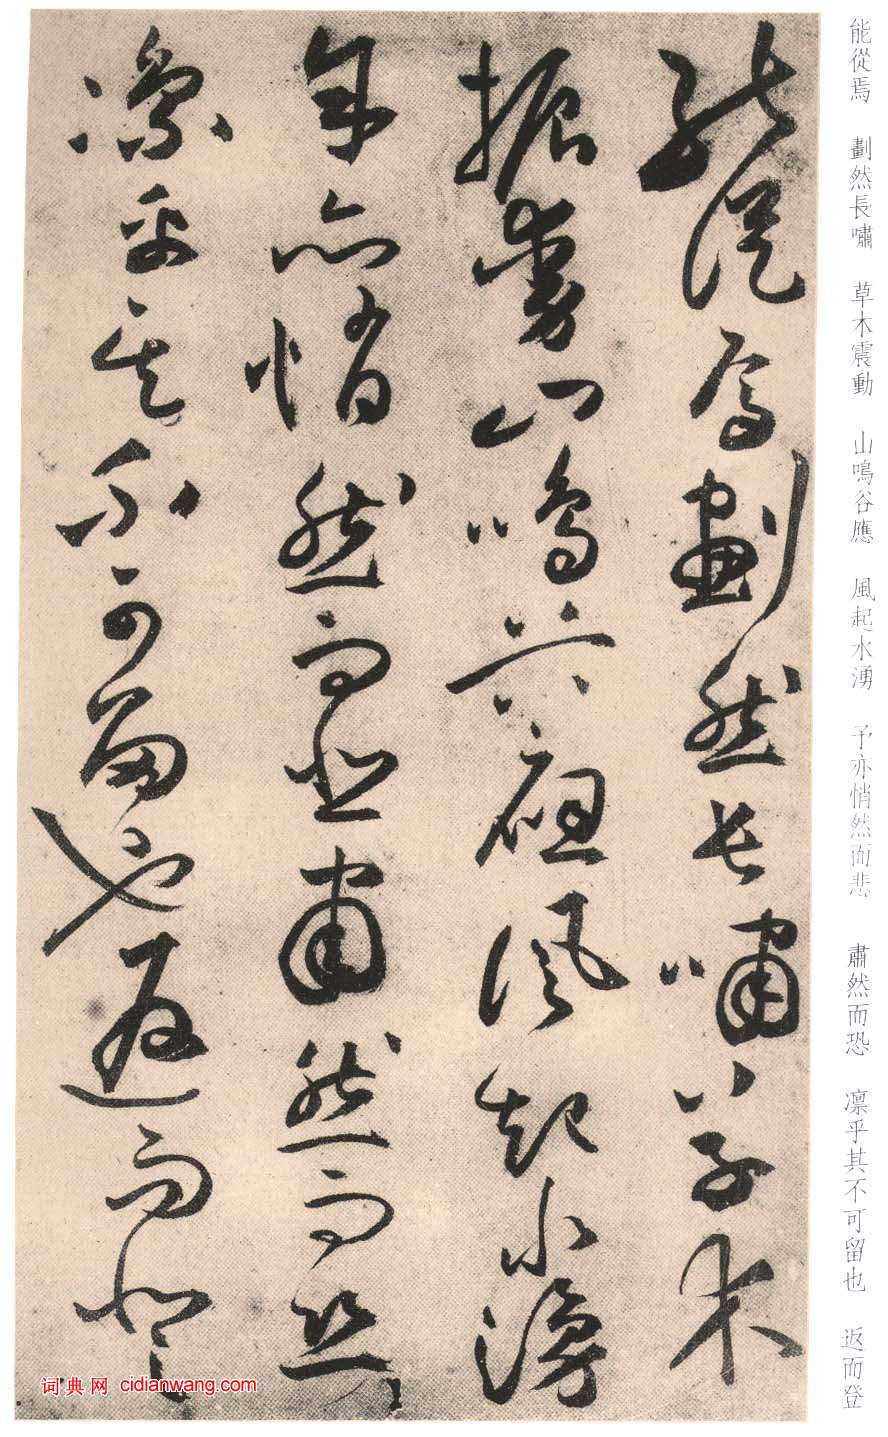 能從焉 劃然長嘯 草木震動 山鳴谷應 風起水湧 予亦悄然而悲 肅然而恐 凛乎其不可留也 返而登
能從焉劃然長嘯草木
振動山鳴谷應風起水湧
予亦悄然而悲肅然而恐
凛乎其不可留也返而登
词典网 cidianwang.com